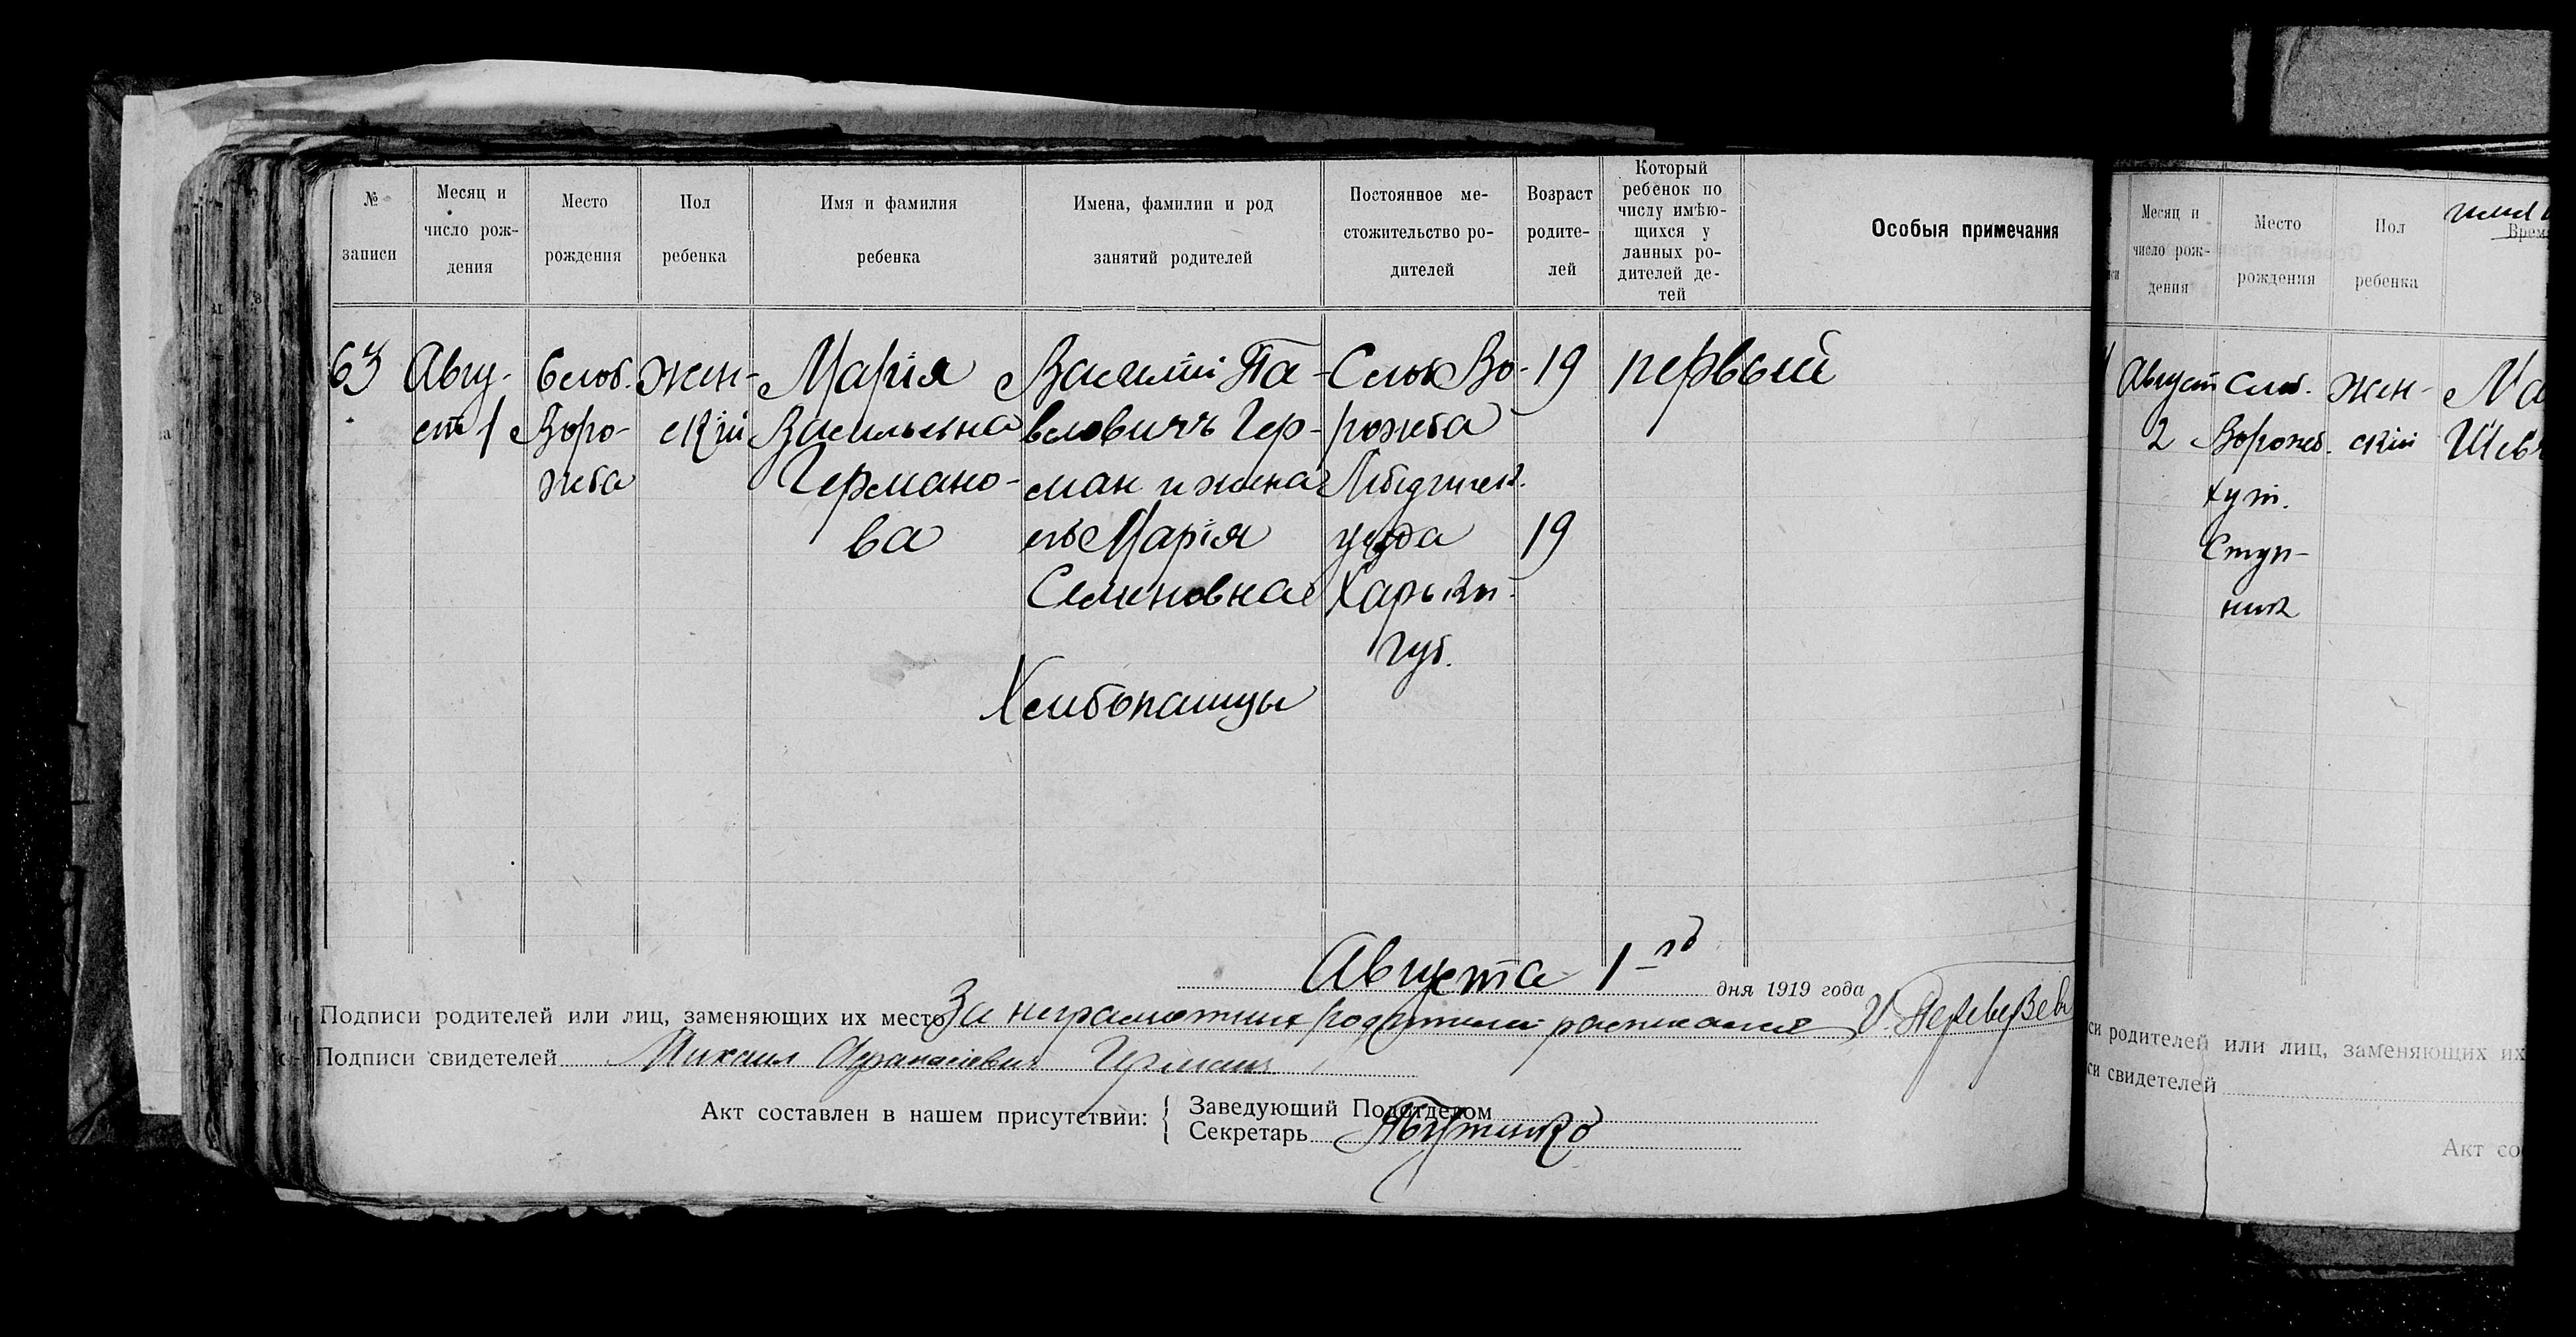 № записи
Месяц и число рождения
Место рождения
Пол ребенка
Имя и фамилия ребенка
Имена, фамилии и род занятий родителей
Постоянное местожительство родителей
Возраст родителей
Который ребенок по числу имѣющихся у данных родителей детей
Особыя примечания
63
Авгу-
ст 1
Слоб.
Воро-
жба
Жен-
скій
Марія
Васильевна
Германо-
ва
Василій Па-
вловичъ Гер-
ман и жена
его Марія
Семеновна
Хлебопашцы
Слоб Во-
рожба
Лебединск.
уезда
Харьков.
губ.
19
19
первый
Августа 1-го дня 1919 года
Подписи родителей или лиц, заменяющих их место За неграмотных родителей расписался
Подписи свидетелей Михаил Афанасіевич Герман
Акт составлен в нашем присутствии:
Заведующий Подотделом
Секретарь
Месяц и
число рож-
дения
Место
рождения
Пол
ребенка
Август
2
Слоб.
Ворожб.
хут.
Ступ-
ник
жен-
скій
си родителей или лиц, заменяющих их
си свидетелей
Акт со